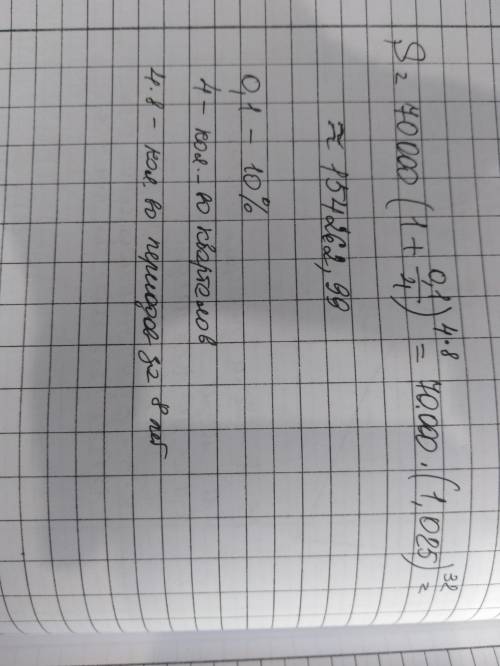 S = 70000 (1 + 0,1/4)^4·8 = 70.000 · (1,025)^32 =
≈ 154262,99
0,1 – 10%
4 – кол-во кварталов
4·8 – кол. во периодов за 8 лет